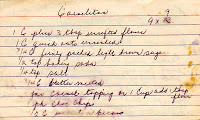 Carmelitas 9
9 x 12
1 C plus 3 tbsp unsifted flour
1 C quick oats uncooked
3/4 C firmly packed light brown sugar
1/2 tsp baking soda
1/4 tsp salt
3/4 C butter melted
for caramel topping on 1 cup add 1 tbsp flour
1 pk choc chips
1/2 C pecans